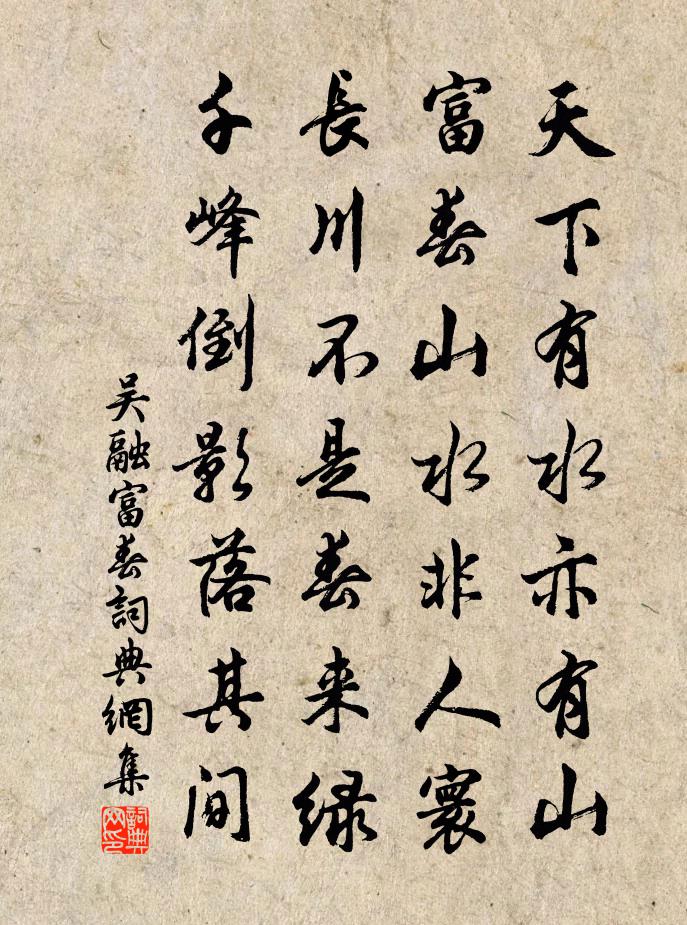 天下有水亦有山
富春山水非人寰
長川不是春来緑
千峰倒影落其间
吴融富春詞典網集
詞典网印